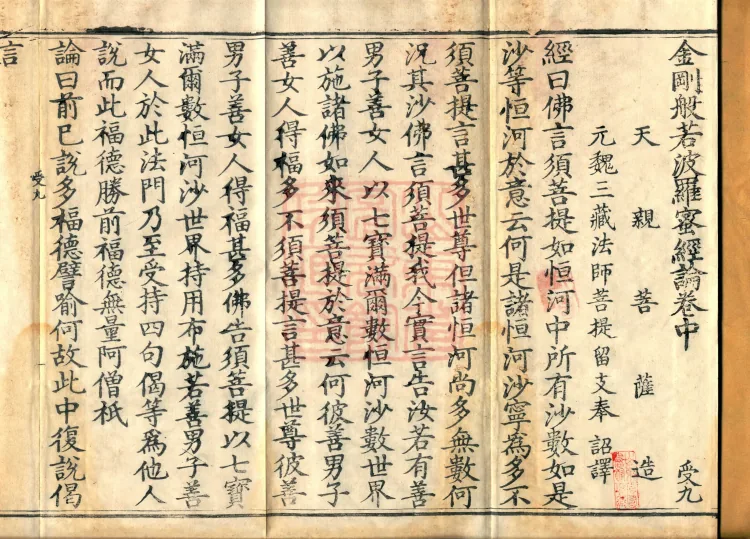 金剛般若波羅蜜經論卷中 受九
天親菩薩造
元魏三藏法師菩提留支奉 詔譯
經曰佛言須菩提如恒河中所有沙數如是
沙等恒河於意云何是諸恒河沙寧為多不
須菩提言甚多世尊但諸恒河尚多無數何
況其沙佛言須菩提我今實言告汝若有善
男子善女人以七寶滿爾數恒河沙數世界
以施諸佛如來須菩提於意云何彼善男子
善女人得福多不須菩提言甚多世尊彼善
男子善女人得福甚多佛告須菩提以七寶
滿爾數恒河沙世界持用布施若善男子善
女人於此法門乃至受持四句偈等為他人
說而此福德勝前福德無量阿僧祇
論曰前已說多福德譬喻何故此中復說偈
受九
言